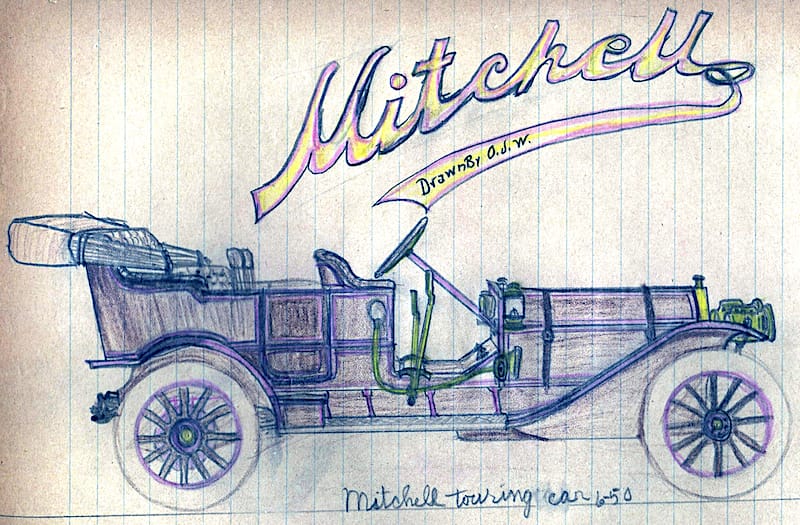 Mitchell
Drawn By O.J.W.
Mitchell touring car 6-50